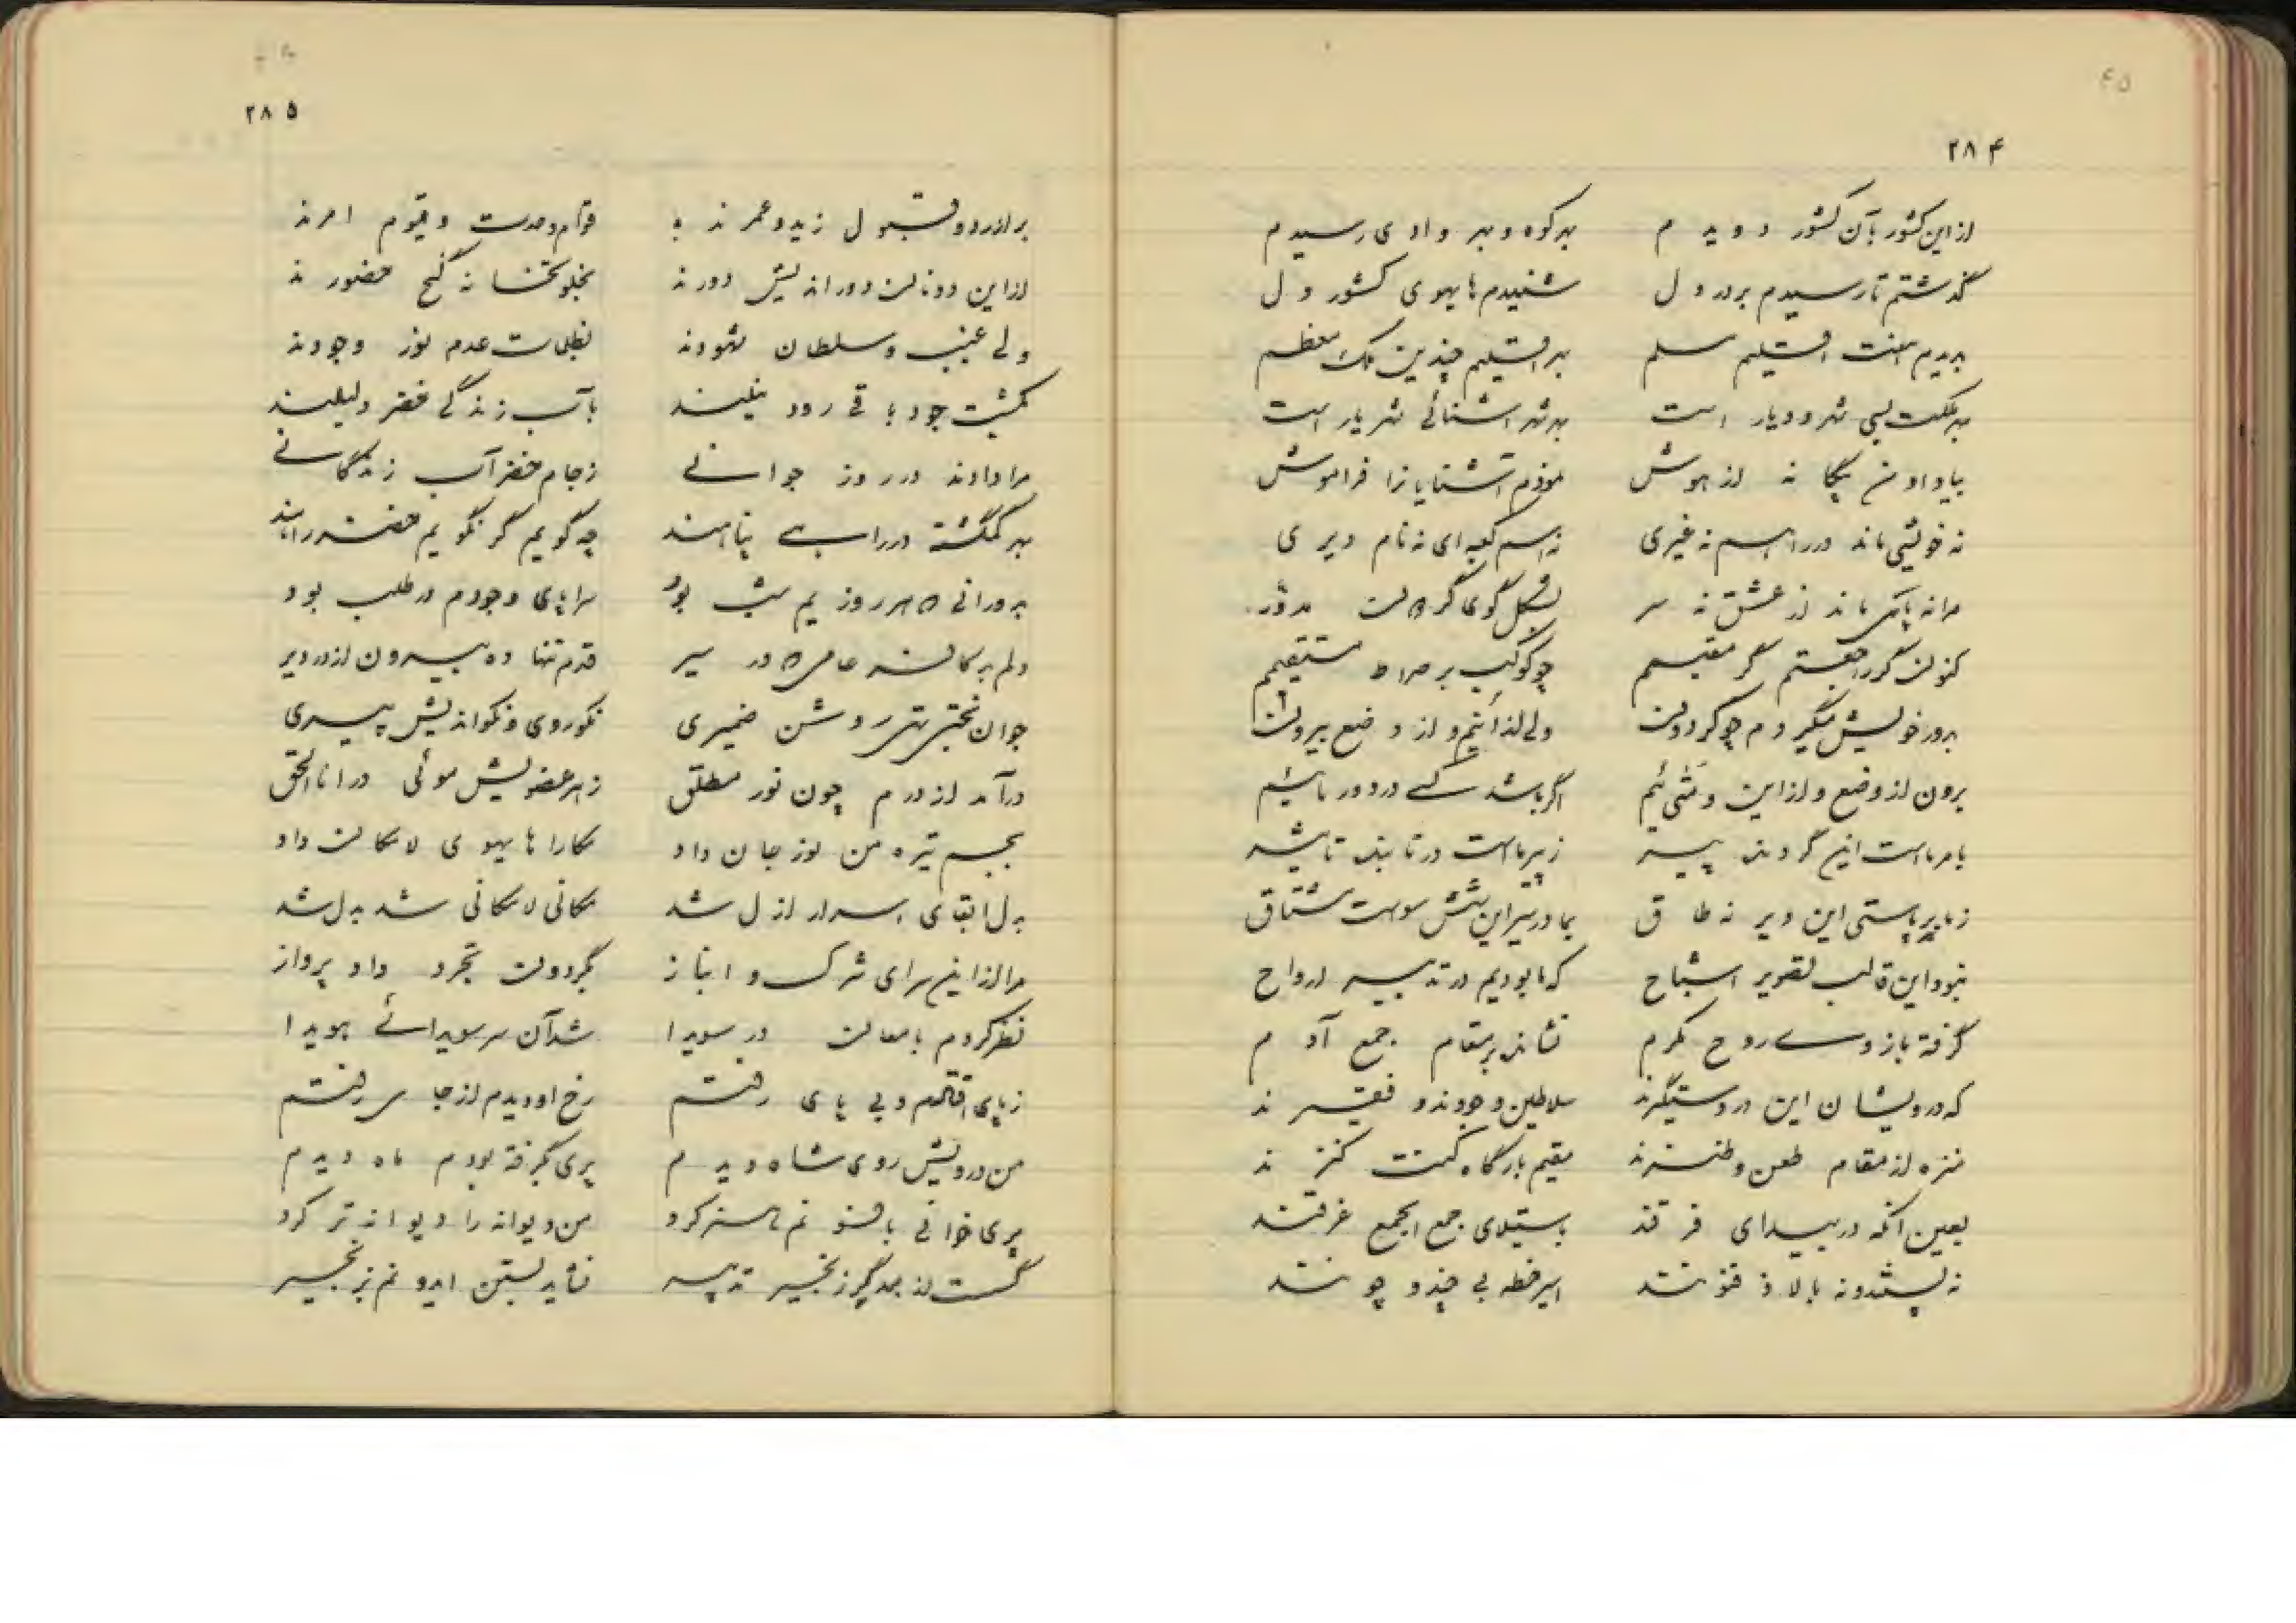 ۲۸۴
از این کشور بآن کشور دویدم بهر کوه و بهر وادی رسیدم
گذشتم تا رسیدم بر در دل شنیدم هایهوی کشور دل
بدیدم هفت اقلیم مسلم بهر اقلیم چندین ملک معظم
بهر مملکت بسی شهر و دیار است بهر شهر آشنائی شهریار است
بیاد او من بیگانه از هوش نمودم آشنایانرا فراموش
نه خویشی ماند در راهم نه غیری نه اسم کعبه‌ای نه نام دیری
مرا نه پای ماند از عشق نه سر بشکل گوی گردان مدور
کنون گر راجعستم گر مقیمم چو کوکب بر صراط مستقیمم
بدور خویش میگردم چو گردون ولی از انیم و از وضع بیرون
برون از وضع و از این و متی‌ئیم اگر باشد کسی در دور مائیم
بامر ماست این گردنده پیشه ز پیر ماست در تابنده تاشیه
ز ما بر پاستی این دیر نه طاق بما در سیر این شش سوست مشتاق
نبود این قالب تصویر اشباح که ما بودیم در تدبیر ارواح
گرفته بازوی روح مکرم نشاندیم بر مقام جمع آدم
که درویشان این در دستگیرند سلاطین وجودند و فقیرند
منزه از مقام طعن و طنزند مقیم بارگاه کنت کنزند
بعین آنکه در بیدای فرقند باستیلای جمع الجمع غرقند
نه پستند و نه بالا ذوفنونند امیر خطه بی چند و چونند
۲۸۵
بر از رد و قبول زید و عمرند قوام وحدت و قیوم امرند
از این دونان دور اندیش دورند بخلوتخانه گنج حضورند
ولی غیب و سلطان شهودند بظلمات عدم نور وجودند
بکشت جود باقی رود نیلند بآب زندگی خضر دلیلند
مرا دادند در روز جوانی ز جام خضر آب زندگانی
بهر گمگشته در راهی پناهند چه گویم گر نگویم خضر راهند
بدورانی که هر روزیم شب بود سراپای وجودم در طلب بود
دلم بر کاشانه خاص که در سیر قدم تنها ده بیرون از در دیر
جوان بختی شهی روشن ضمیری نکوروی و نکو اندیش پیری
درآمد از درم چون نور مطلق ز هر عضویش موئی در انا الحق
بجسم تیره من نور جان داد مکارا هایهوی لامکان داد
بدل ابقای اسرار ازل شد مکانی لامکانی شد بدل شد
مرا از این سرای شرک و انباز بگردون تجرد داد پرواز
نظر کردم بامعان در سویدا شد آن سر سویدائی هویدا
ز پای افتادم و بی پای رفتم رخ او دیدم از جا سر رفتم
من درویش روی شاه دیدم پری بگرفته بودم ماه دیدم
پری خوانی با فسونم مسخر کرد من دیوانه را دیوانه تر کرد
گسست از یکدگر زنجیر تدبیر نشاید بستن ایدونم بزنجیر